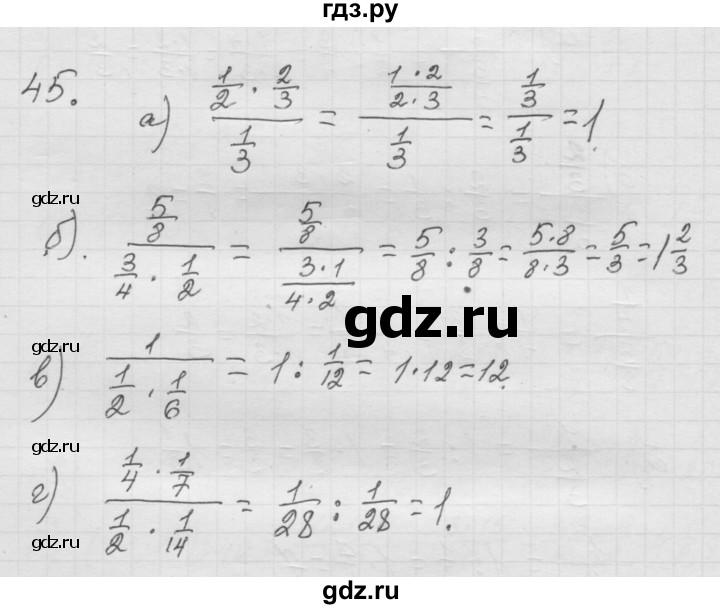 гдз.ру
45. а) (1/2 · 2/3)/(1/3) = ((1·2)/(2·3))/(1/3) = (1/3)/(1/3) = 1.
gdz.ru
б). (5/8)/(3/4 · 1/2) = (5/8)/((3·1)/(4·2)) = 5/8 : 3/8 = (5·8)/(8·3) = 5/3 = 1 2/3
gdz.ru
gdz.ru
в) 1/(1/2 · 1/6) = 1 : 1/12 = 1·12 = 12.
gdz.ru
г) (1/4 · 1/7)/(1/2 · 1/14) = 1/28 : 1/28 = 1.
gdz.ru
gdz.ru